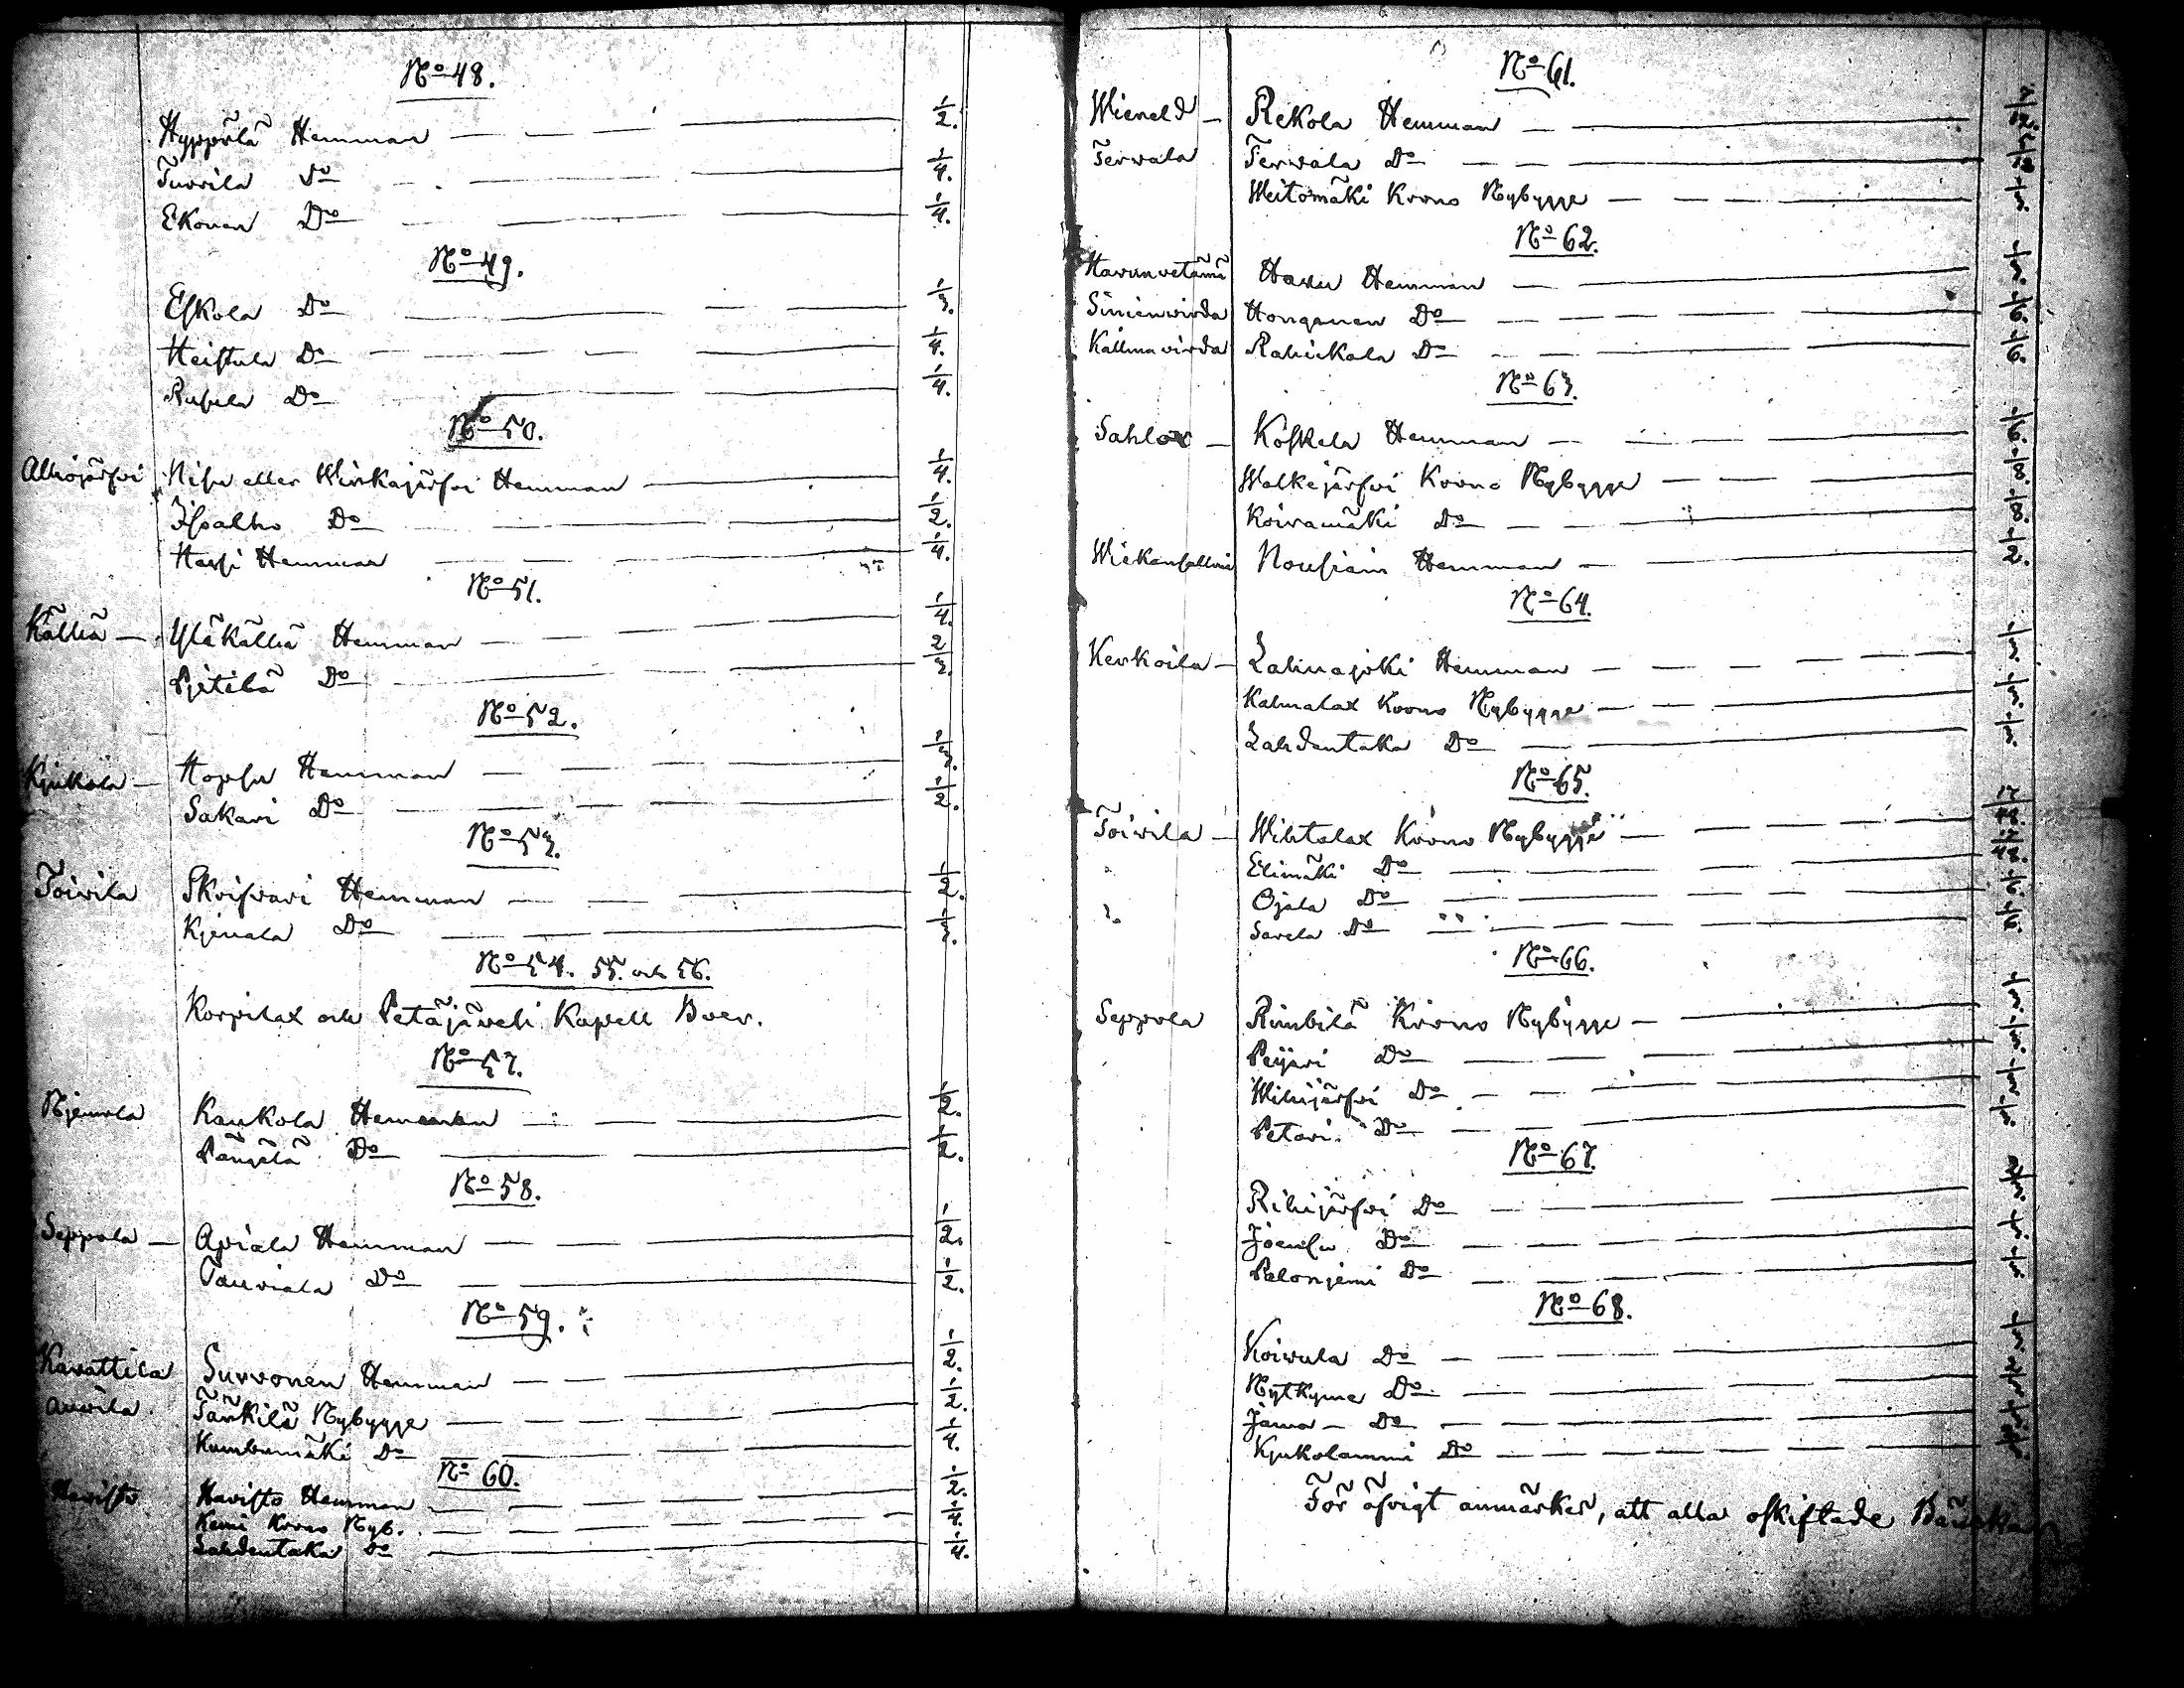 No 48.
Hyppölä Hemman — — — 1/2.
Tuorila Do — — 1/4.
Ekonen Do — — 1/4.
No 49.
Eskola Do — — — 1/3.
Heistula Do — — — 1/4.
Rusela Do — — 1/4.
No 50.
Alhojärfvi Nisu eller Wirkajärfvi Hemman — 1/4.
Isoalho Do — — — 1/2.
Harsi Hemman — — — 1/4.
No 51.
Källiä — Yläkälliä Hemman — — — 1/4.
Pjetilä Do — — — 2/3.
No 52.
Kjukola — Hopsu Hemman — — — 1/3.
Sakari Do — — — 1/2.
No 53.
Toivila Skrifvari Hemman — — — 1/2.
Kjenala Do — — — 1/3.
No 54. 55. och 56.
Korpilax och Petäjäveli Kapell Boer.
No 57.
Njemola Kaukola Hemman — — 1/2.
Pängälä Do — — 1/2.
No 58.
Seppola — Apiala Hemman — — — 1/2.
Tauriala Do — — 1/2.
No 59.
Kavattila Survonen Hemman — — 1/2.
Auvila. Tänkilä Nybygge — — — 1/2.
Kumbumäki Do — — — 1/4.
No 60.
Havisto Havisto Hemman — — — 1/2.
Keuni Krono Nyb. — — — 1/4.
Lahdentaka Do — — 1/4.
No 61.
Rekola Hemman — —
Terwala Terwala Do — — —
Weitomäki Krono Nybygge — — — 1/3.
No 62.
Havunvetämä Havu Hemman — — 1/3.
Sinienvirda Honganen Do — — — 1/6.
Källunvirda Rahikala Do — — — 1/6.
No 63.
Sahlox — Koskela Hemman — — — 1/6.
Walkejärfvi Krono Nybygge — — — 1/8.
Koivamäki Do — — — 1/8.
Nousiain Hemman — — 1/2.
No 64.
Kerkoila — Lahnajoki Hemman — — — 1/3.
Kalmalax Krono Nybygge — — — 1/3.
Lahdentaka Do — — 1/3.
No 65.
Toivila — Wihtalax Krono Nybygge — — —
Elimäki Do — — —
Ojala Do — — — 1/6.
Sarela Do — — —
No 66.
Seppola Rimbilä Krono Nybygge — — 1/3.
Peijari Do — — — 1/3.
Wihijärfvi Do — — — 1/3.
Petari Do — — — 1/3.
No 67.
Rihijärfvi Do — — —
Joensu Do — — —
Palonjemi Do — — — 1/3.
No 68.
Koivula Do — — — 1/3.
Nytkyme Do — — —
Jama — Do — — —
Kjukolammi Do — — —
För öfrigt anmärkes, att alla oskiftade Bänkar